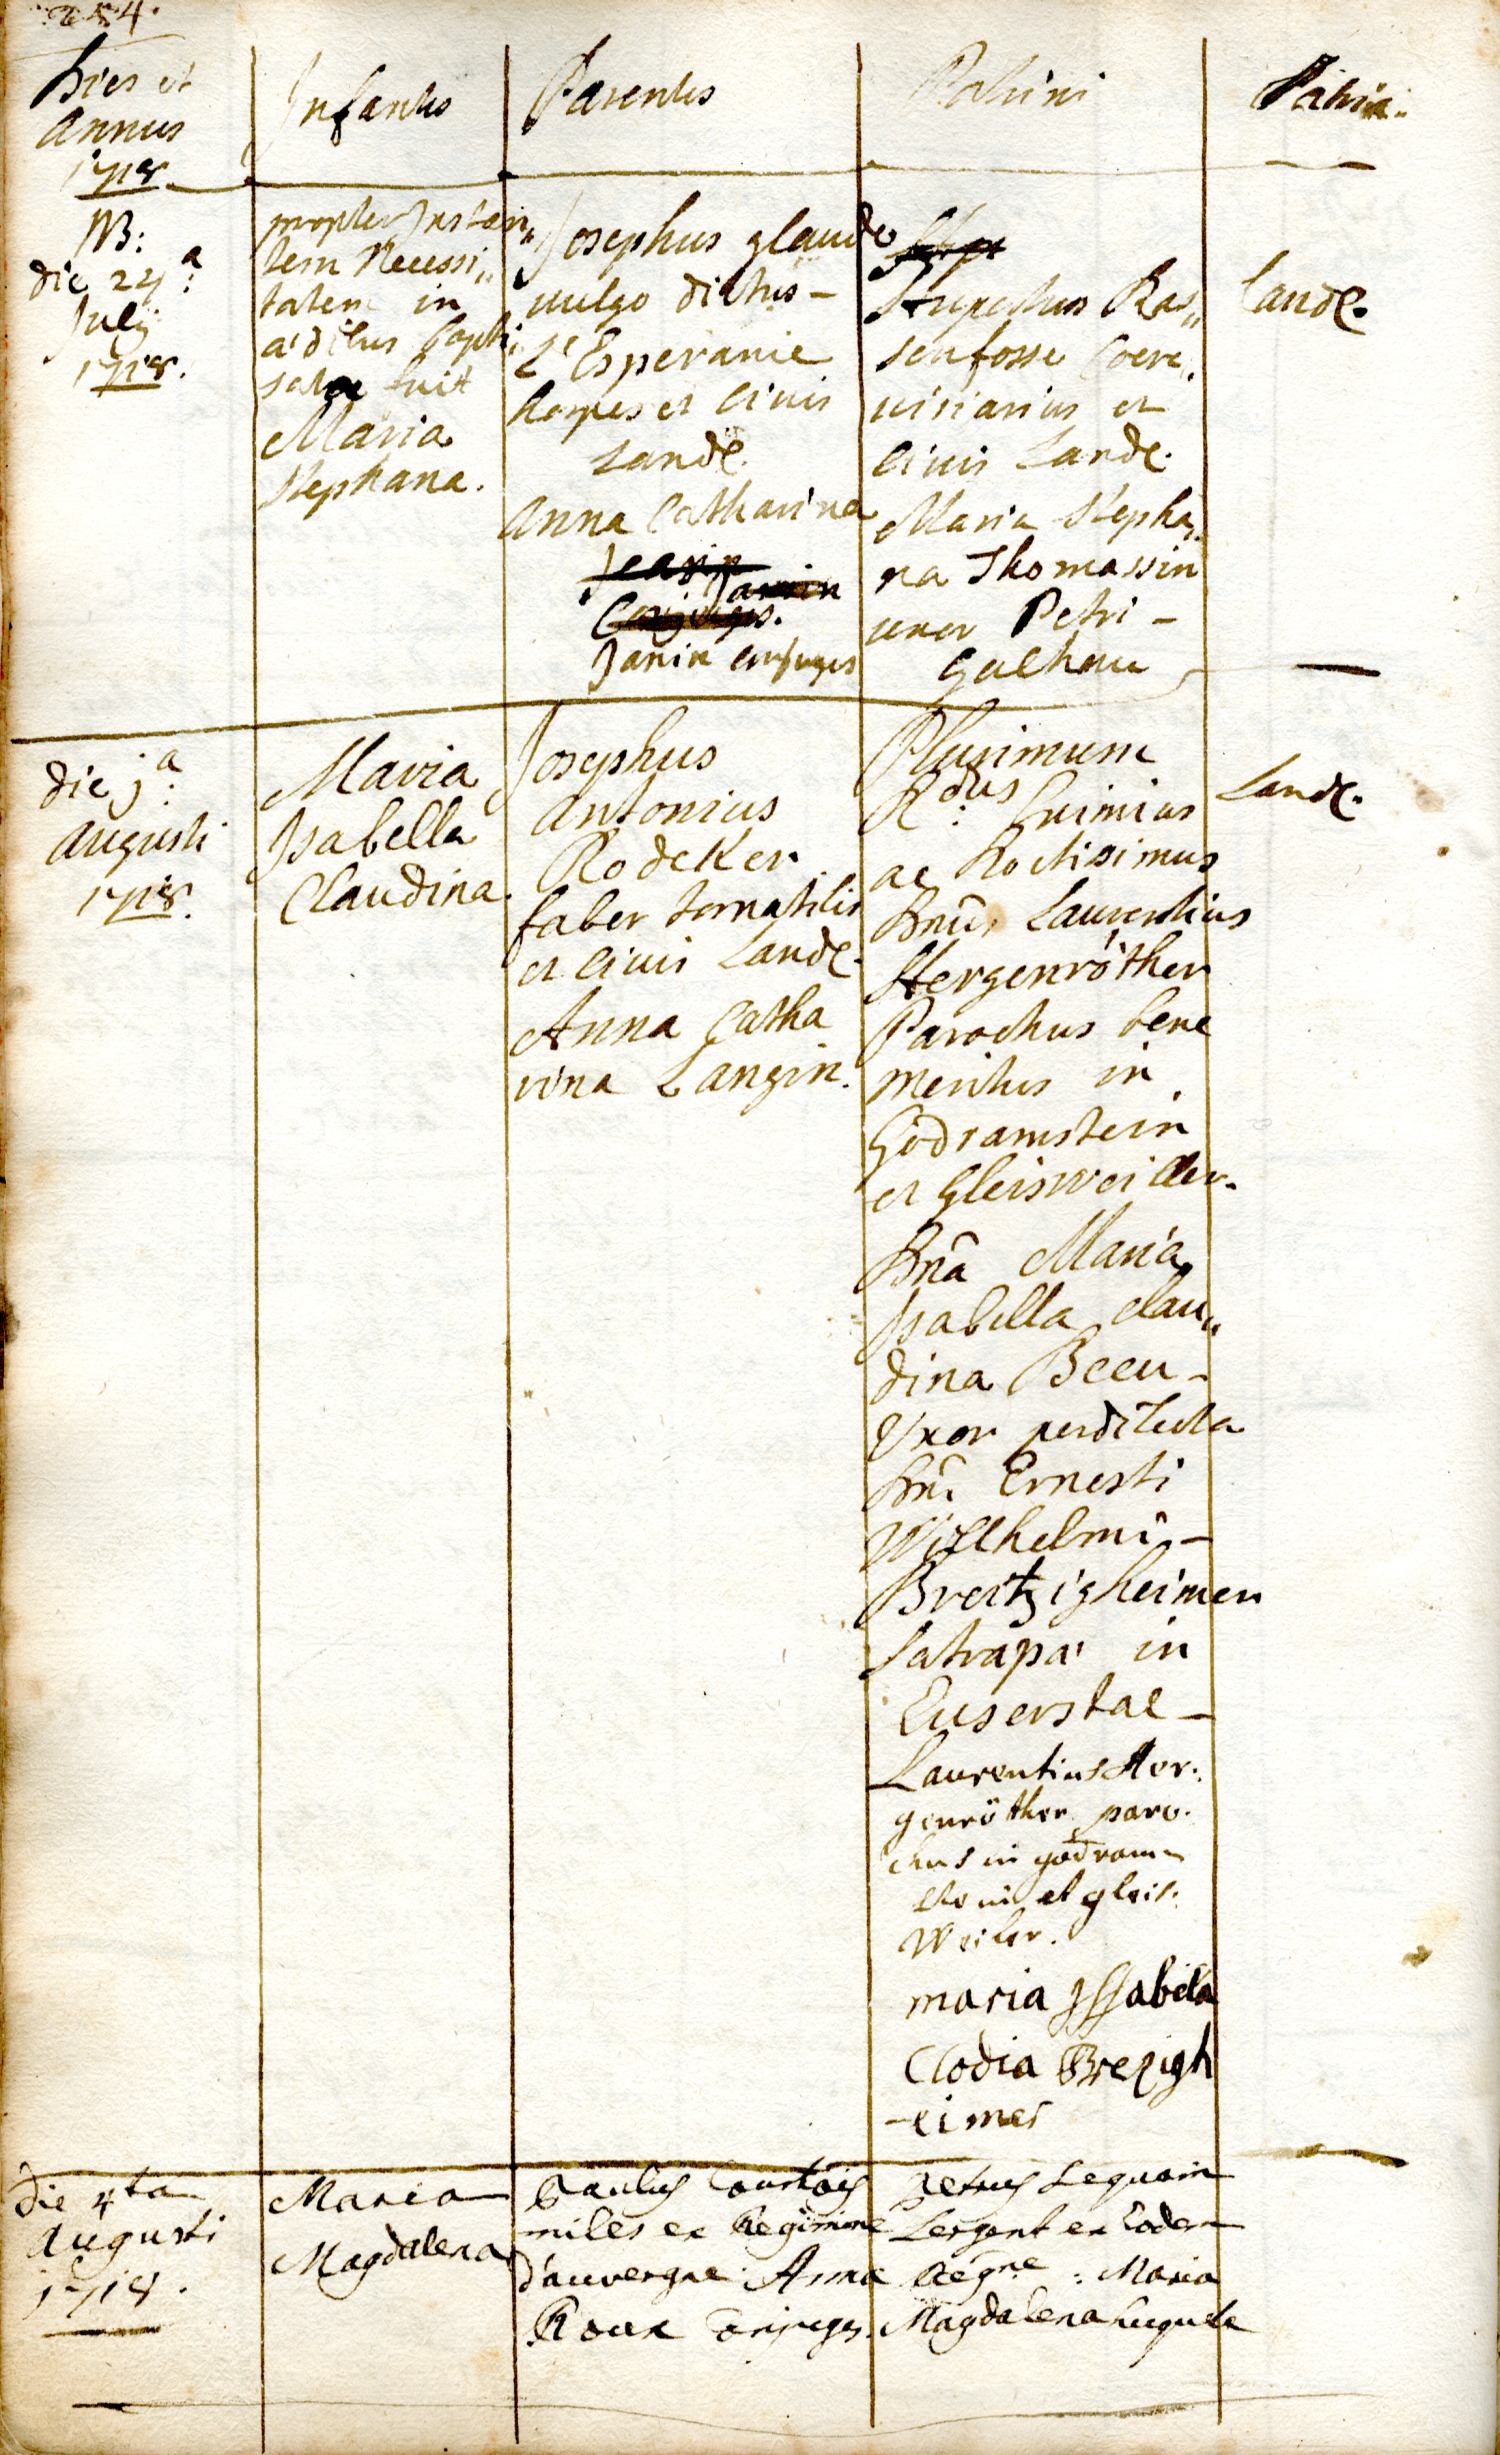 Dies et
Annus
1718
Infantes
Parentes
Patrini
Patria.
NB:
die 24ª
July
1718.
propter Instan„
tem Necessi„
tatem in
ædibus bapti„
sata fuit
Maria
Stephana.
Josephus glaude
vulgo dictus –
L'Esperance
hospes et Civis
Land.
Anna Catharina
Janin
Conjuges.
Janin conjuges
Rupertus Ras„
senfosse Coere„
visiarius et
Civis Land.
Maria Stepha„
na Thomassin
uxor Petri –
Land.
die 1ª
Augusti
1718.
Maria
Isabella
Claudina
Josephus
Antonius
Rodeker
faber tornatilis
et Civis Land.
Anna Catha
rina Langin.
Plurimum
Rdus: Eximius
ac Doctissimus
Dnus Laurentius
Hergenröther
Parochus bene
meritus in
Godramstein
et Gleisweiller.
Dna Maria
Isabella Clau„
dina Becu –
Uxor perdilecta
Dni Ernesti
Willhelmi –
Breitzigheimer
Satrapa in
Euserstal –
Laurentius Her:
genröther paro-
chus in godram-
stein et gleis:
weiler.
maria Issabela
Clodia Brezigh
-eimer
Land.
die 4ta
Augusti
1718.
Maria
Magdalena
Paulus Courtois
miles ex Regimine
d'auvergne. Anna
Roux Conjuges.
Petrus Lequain
Sergent ex Eodem
Regne: Maria
Magdalena